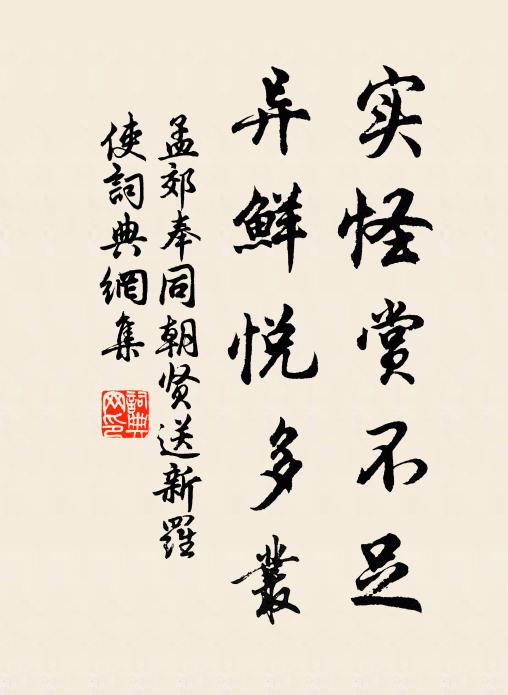 实怪赏不足
异鲜悦多丛
孟郊奉同朝贤送新罗
使詞典網集
詞典
网印